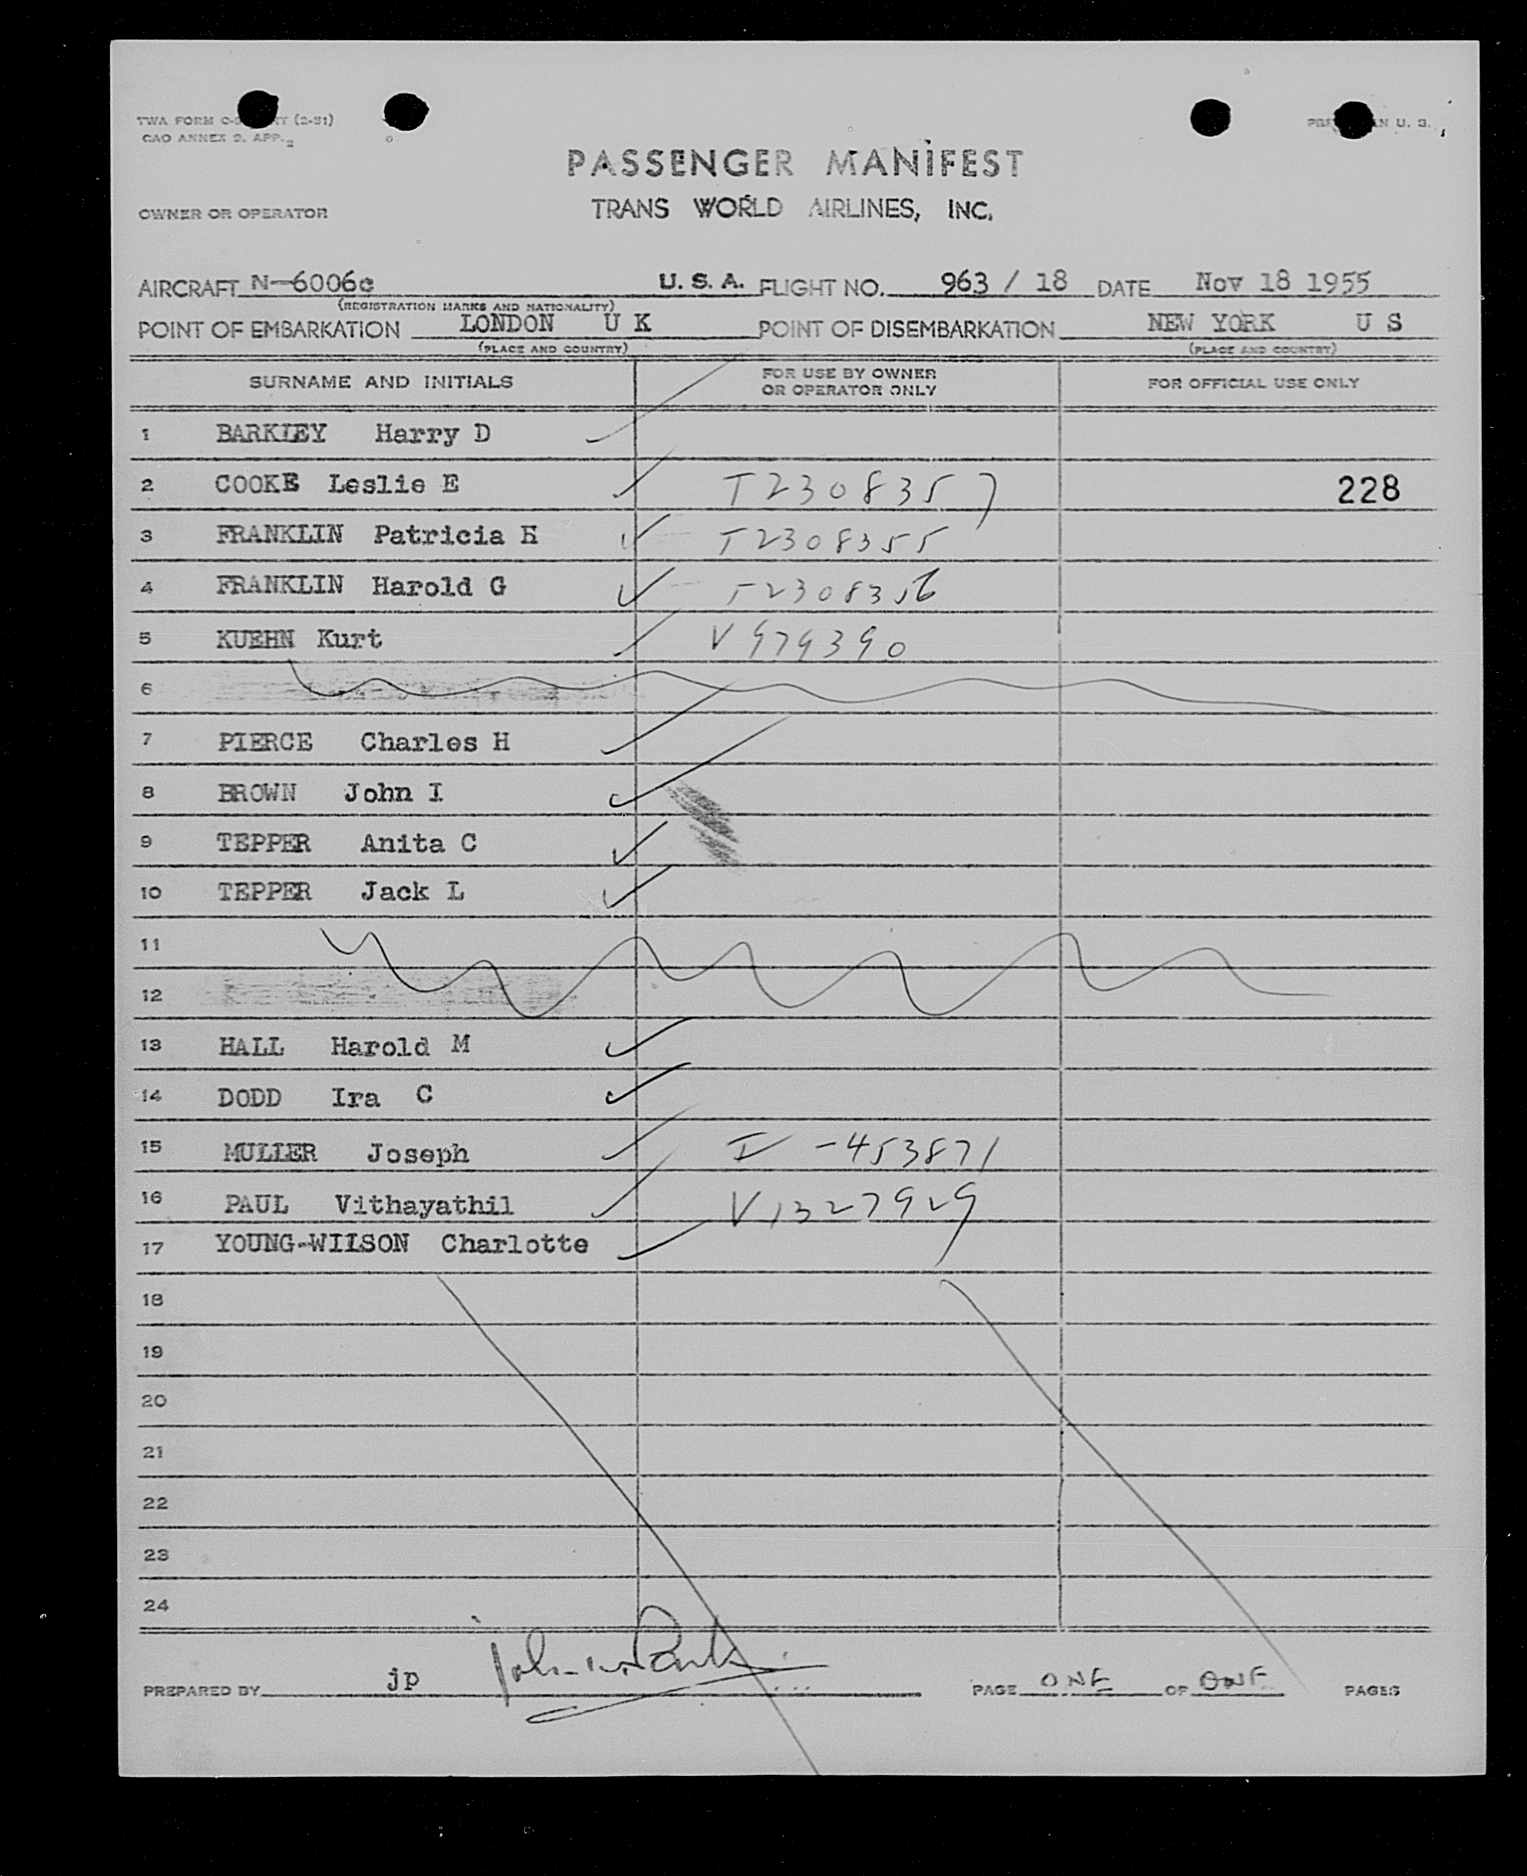 TWA FORM (2-51)
CAO ANNEX 9. APP. 2
U. S.
PASSENGER MANIFEST
TRANS WORLD AIRLINES, INC.
OWNER OR OPERATOR
AIRCRAFT N-6006c U. S. A. FLIGHT NO. 963 / 18 DATE Nov 18 1955
(REGISTRATION MARKS AND NATIONALITY)
POINT OF EMBARKATION LONDON U K POINT OF DISEMBARKATION NEW YORK U S
(PLACE AND COUNTRY) (PLACE AND COUNTRY)
SURNAME AND INITIALS FOR USE BY OWNER OR OPERATOR ONLY FOR OFFICIAL USE ONLY
1 BARKLEY Harry D
2 COOKE Leslie E T2308357 228
3 FRANKLIN Patricia H T2308355
4 FRANKLIN Harold G T2308356
5 KUEHN Kurt V979390
6
7 PIERCE Charles H
8 BROWN John I
9 TEPPER Anita C
10 TEPPER Jack L
11
12
13 HALL Harold M
14 DODD Ira C
15 MULLER Joseph I -453871
16 PAUL Vithayathil V1327929
17 YOUNG-WILSON Charlotte
18
19
20
21
22
23
24
PREPARED BY jp John PAGE ONE OF ONE PAGES